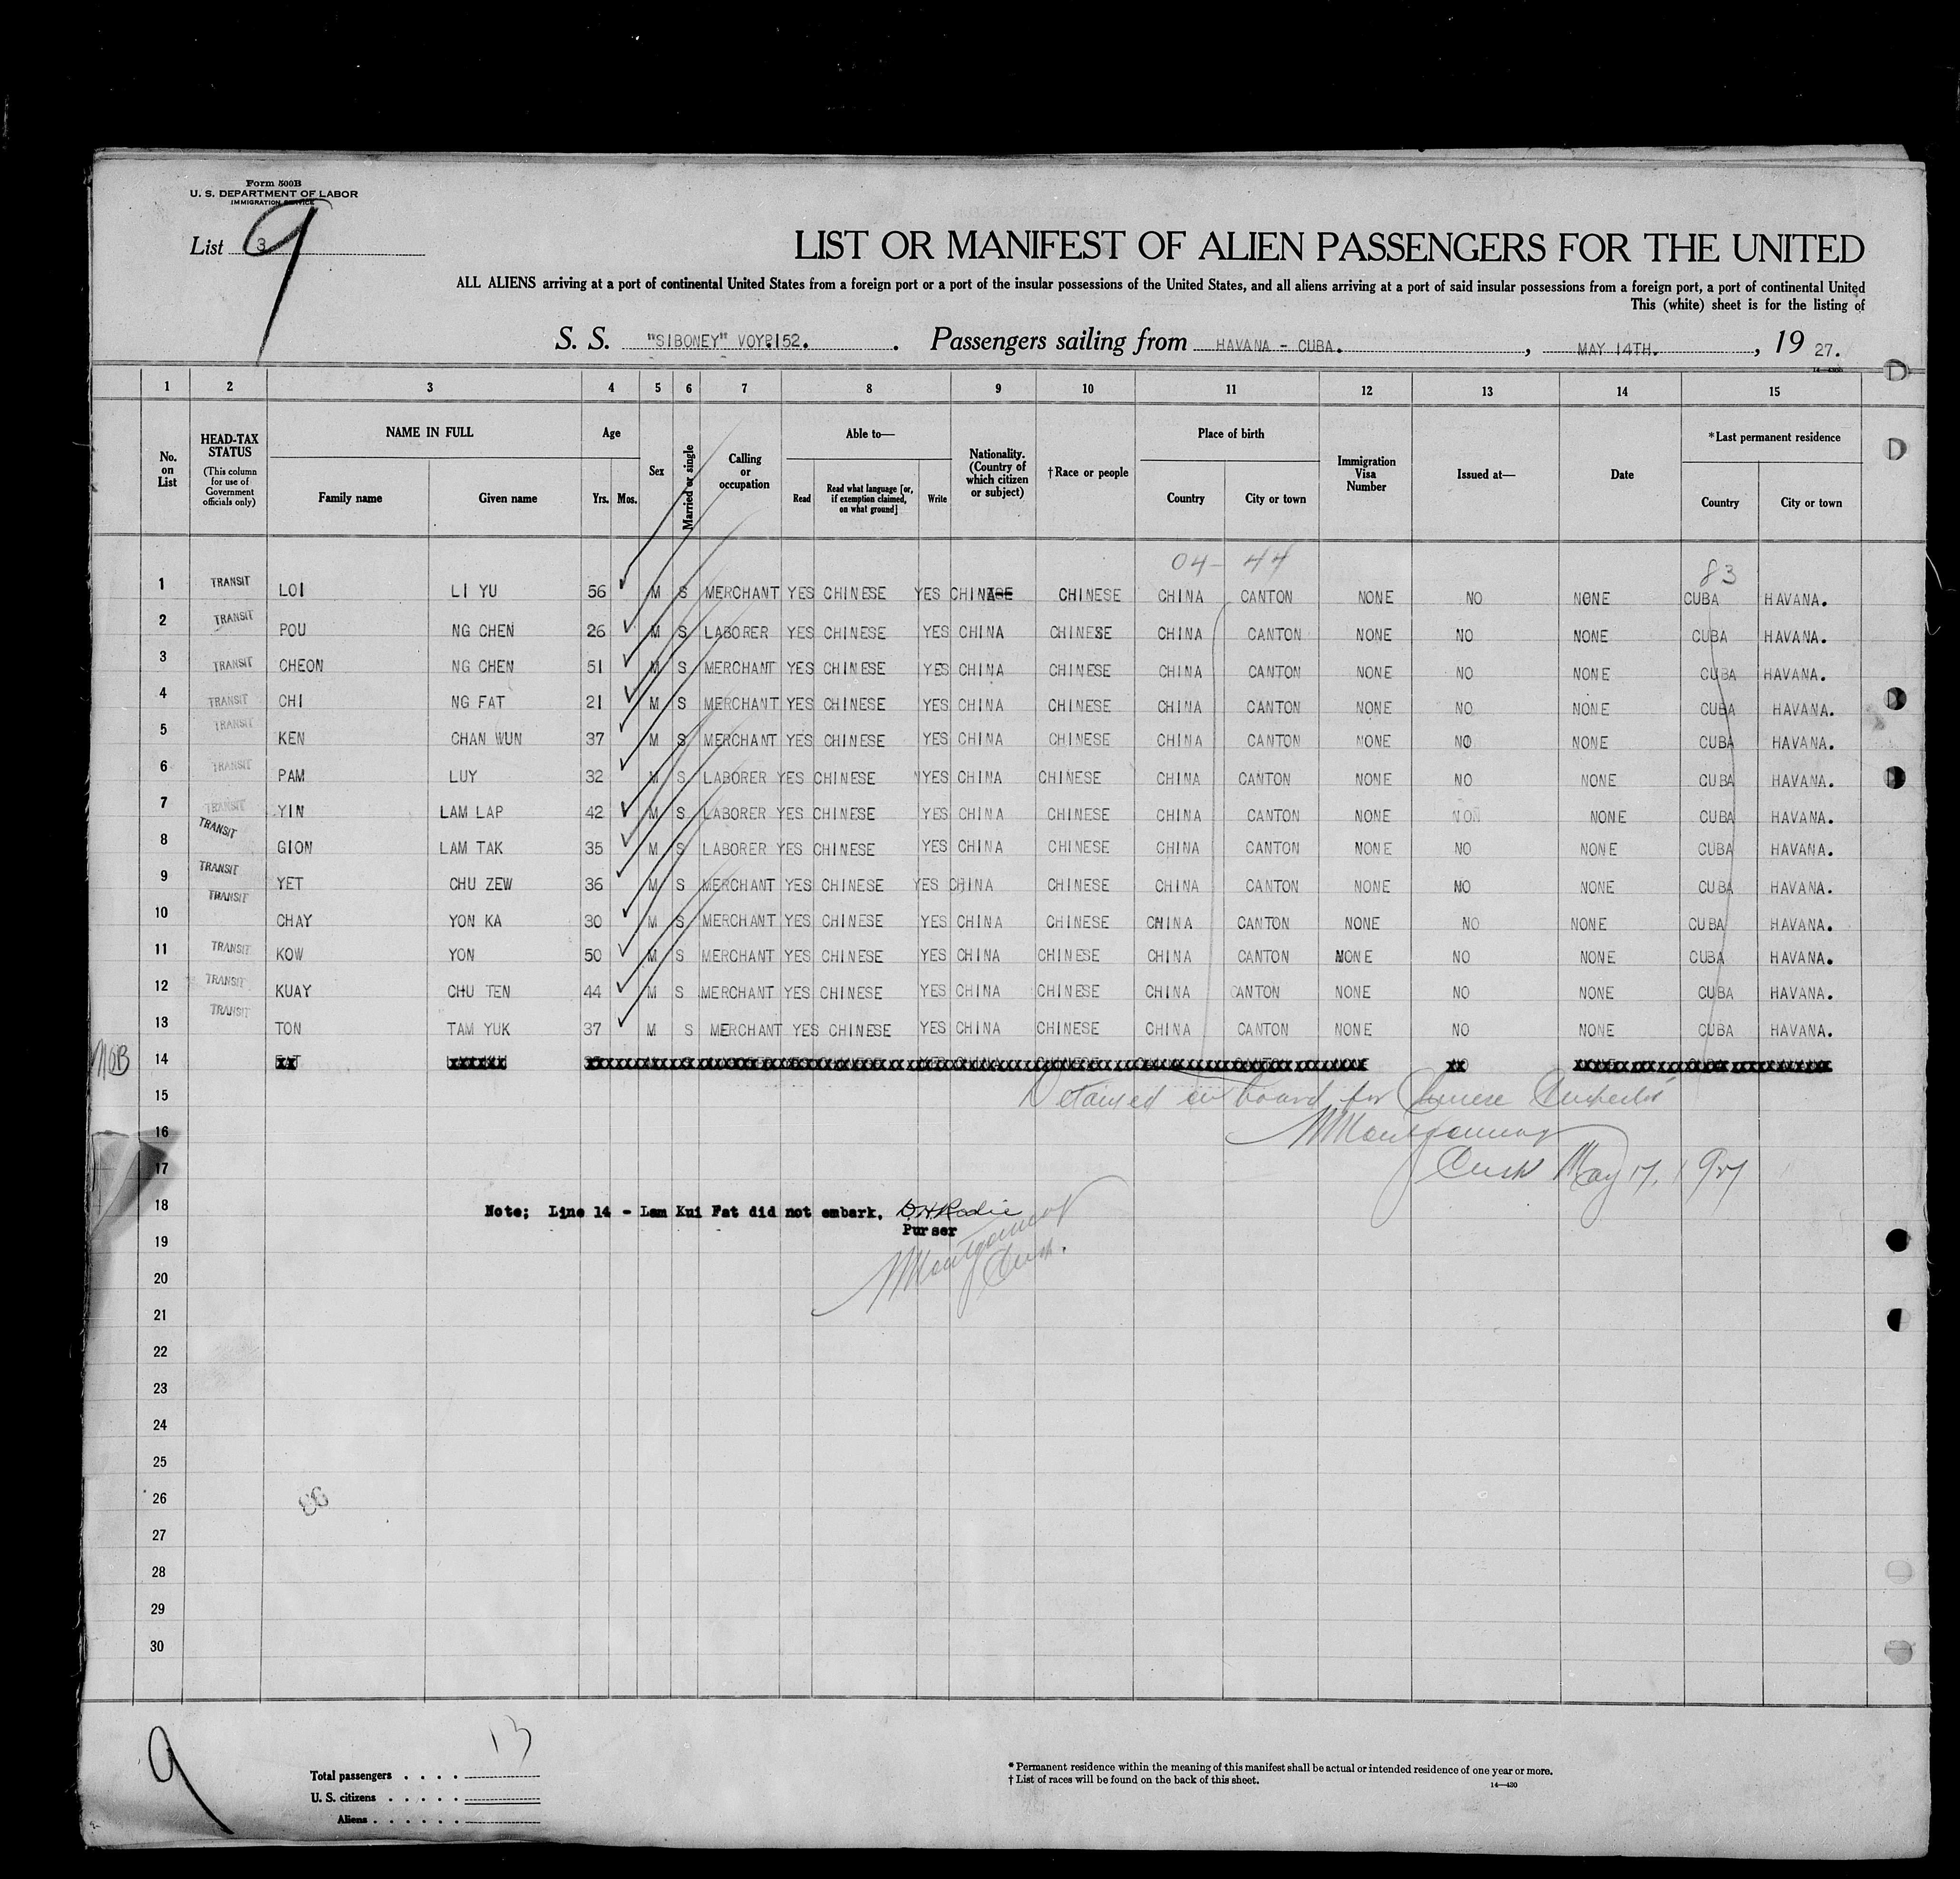 Form 500B
U. S. DEPARTMENT OF LABOR
IMMIGRATION SERVICE
List 3
9
LIST OR MANIFEST OF ALIEN PASSENGERS FOR THE UNITED
ALL ALIENS arriving at a port of continental United States from a foreign port or a port of the insular possessions of the United States, and all aliens arriving at a port of said insular possessions from a foreign port, a port of continental United
This (white) sheet is for the listing of
S. S. "SIBONEY" VOYP.152. . Passengers sailing from HAVANA - CUBA. , MAY 14TH. , 19 27.
14—430
1 2 3 4 5 6 7 8 9 10 11 12 13 14 15
No. on List
HEAD-TAX STATUS (This column for use of Government officials only)
NAME IN FULL Family name Given name
Age Yrs. Mos.
Sex
Married or single
Calling or occupation
Able to— Read Read what language [or, if exemption claimed, on what ground] Write
Nationality. (Country of which citizen or subject)
†Race or people
Place of birth Country City or town
Immigration Visa Number
Issued at—
Date
*Last permanent residence Country City or town
04- 44 83
1 TRANSIT LOI LI YU 56 M S MERCHANT YES CHINESE YES CHINA CHINESE CHINA CANTON NONE NO NONE CUBA HAVANA.
2 TRANSIT POU NG CHEN 26 M S LABORER YES CHINESE YES CHINA CHINESE CHINA CANTON NONE NO NONE CUBA HAVANA.
3 TRANSIT CHEON NG CHEN 51 M S MERCHANT YES CHINESE YES CHINA CHINESE CHINA CANTON NONE NO NONE CUBA HAVANA.
4 TRANSIT CHI NG FAT 21 M S MERCHANT YES CHINESE YES CHINA CHINESE CHINA CANTON NONE NO NONE CUBA HAVANA.
5 TRANSIT KEN CHAN WUN 37 M S MERCHANT YES CHINESE YES CHINA CHINESE CHINA CANTON NONE NO NONE CUBA HAVANA.
6 TRANSIT PAM LUY 32 M S LABORER YES CHINESE YES CHINA CHINESE CHINA CANTON NONE NO NONE CUBA HAVANA.
7 TRANSIT YIN LAM LAP 42 M S LABORER YES CHINESE YES CHINA CHINESE CHINA CANTON NONE NON NONE CUBA HAVANA.
8 TRANSIT GION LAM TAK 35 M S LABORER YES CHINESE YES CHINA CHINESE CHINA CANTON NONE NO NONE CUBA HAVANA.
9 TRANSIT YET CHU ZEW 36 M S MERCHANT YES CHINESE YES CHINA CHINESE CHINA CANTON NONE NO NONE CUBA HAVANA.
10 TRANSIT CHAY YON KA 30 M S MERCHANT YES CHINESE YES CHINA CHINESE CHINA CANTON NONE NO NONE CUBA HAVANA.
11 TRANSIT KOW YON 50 M S MERCHANT YES CHINESE YES CHINA CHINESE CHINA CANTON NONE NO NONE CUBA HAVANA.
12 TRANSIT KUAY CHU TEN 44 M S MERCHANT YES CHINESE YES CHINA CHINESE CHINA CANTON NONE NO NONE CUBA HAVANA.
13 TRANSIT TON TAM YUK 37 M S MERCHANT YES CHINESE YES CHINA CHINESE CHINA CANTON NONE NO NONE CUBA HAVANA.
NOB 14
15 Detained on board for Chinese
16 Montgomery
17 May 17, 1927
18 Note; Line 14 - Lam Kui Fat did not embark. D.H.Rodie
19 Purser
Montgomery
20
21
22
23
24
25
26
27
28
29
30
9
13
Total passengers . . . .
U. S. citizens . . . . .
Aliens . . . . . .
* Permanent residence within the meaning of this manifest shall be actual or intended residence of one year or more.
† List of races will be found on the back of this sheet.
14—430